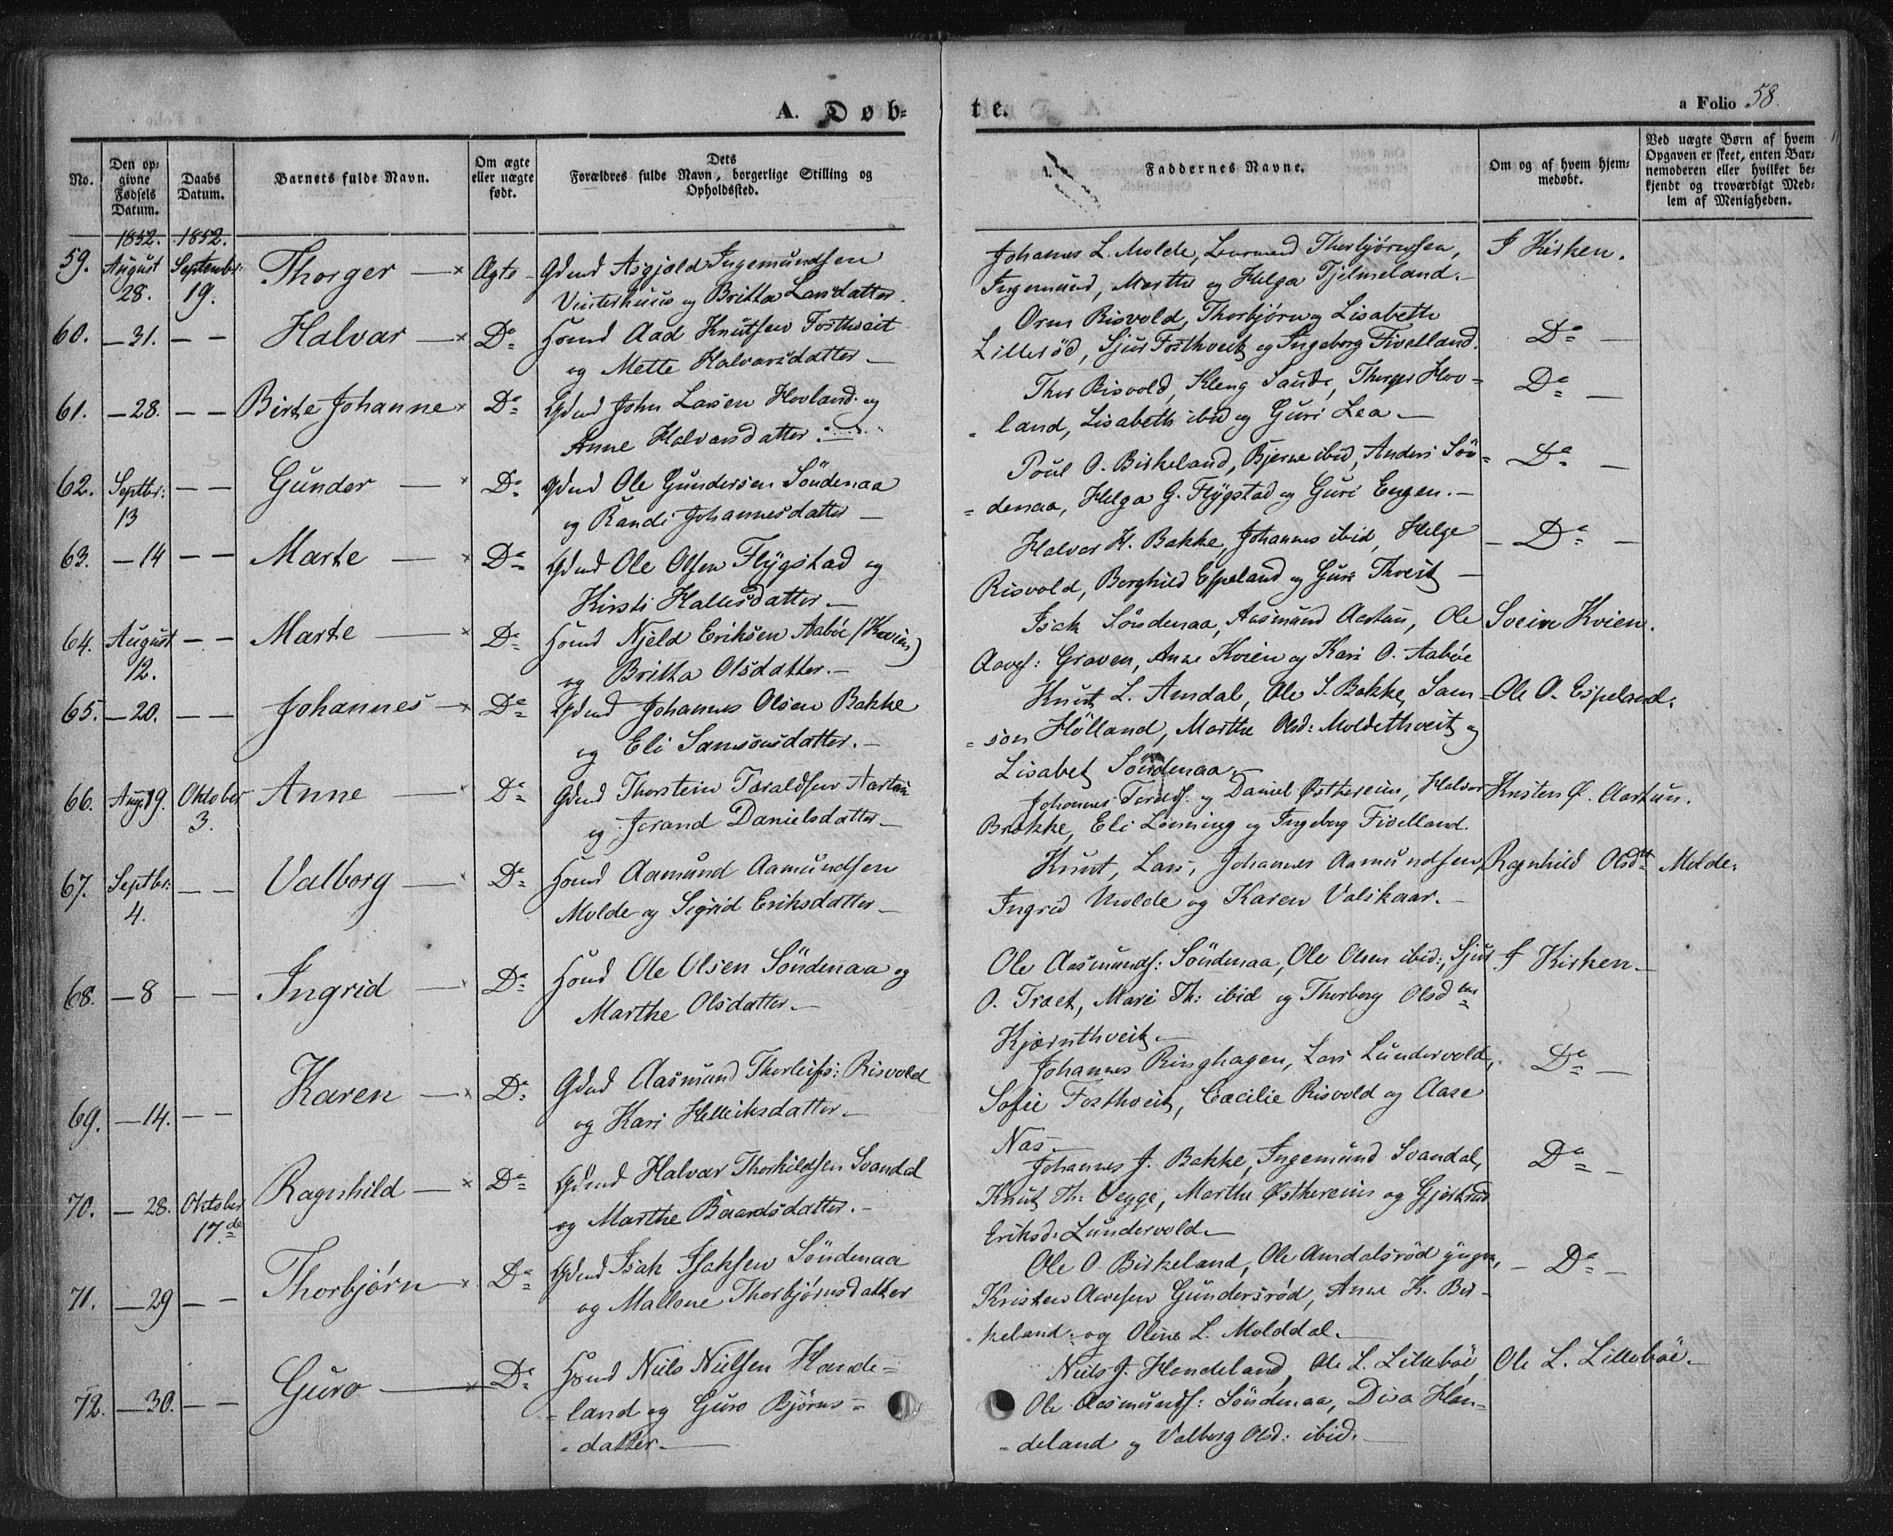 A. Døb-
te.
a Folio 58.
No.
Den op-
givne
Fødsels
Datum.
Daabs
Datum.
Barnets fulde Navn.
Om ægte
eller uægte
født.
Dets
Forældres fulde Navn, borgerlige Stilling og
Opholdssted.
Faddernes Navne.
Om og af hvem hjem-
medøbt.
Ved uægte Børn af hvem
Opgaven er skeet, enten Bar-
nemoderen eller hvilket be-
kjendt og troværdigt Med-
lem af Menigheden.
1852. 1852.
59. August 28. September 19. Thorger Ægte Gdmd Asgjald Ingemundsen
Vinterhuus og Britta Larsdatter.
Johannes L. Molde, Thorbjørnsen, I Kirken.
Ingemund, Marthe og Helga Tjelmeland.
60. 31. Halvar Do Huusmd Aad Knutsen Fosthveit
og Mette Halvarsdatter
Orm Risvold, Thorbjørn og Lisabeth
Lillerød, Sjur Fosthveit og Ingeborg Fivelland. Do
61. 28. Birte Johanne Do Gdmd John Larsen Hovland og
Anne Halvarsdatter
Thor Risvold, Kleng Saude, Thorger Hov-
land, Lisabeth ibid og Guri Lea Do
62. Septbr: 13 Gunder Do Gdmd Ole Gundersen Söndenaa
og Randi Johannesdatter
Poul O. Birkeland, Bjerne ibid, Anders Sön-
denaa, Helga G. Flÿgstad og Guri Engen. Do
63. 14 Marte Do Gdmd Ole Olsen Flÿgstad og
Kirsti Hallesdatter
Halvor H. Bakke, Johannes ibid, Helge
Risvold, Borghild Espeland og Guri Thveit Do
64. August 12. Marte Do Huusmd Njeld Eriksen Aabøe (Kvien)
og Britta Olsdatter.
Isak Söndenaa, Aasmund Aartun, Ole Svein Kvien.
Aavef: Graven, Anne Kvien og Kari O. Aabøe
65. 20. Johannes Do Gdmd Johannes Olsen Bakke
og Eli Samsonsdatter.
Knut L. Amdal, Ole S. Bakke, Sam- Ole O. Espeland.
son Hölland, Marthe Olsd: Moldethveit og
Lisabet Söndenaa.
66. Aug. 19. Oktober 3. Anne Do Gdmd Thorstein Taraldsen Aartun
og Jorand Danielsdatter
Johannes og Daniel Østhereim, Halvor Kristen Ø. Aartun.
Brakke, Eli Lönning og Ingeborg Fivelland.
67. Septbr: 4. Valborg Do Huusmd Aamund Aamundsen
Molde og Sigrid Eriksdatter
Knut, Lars, Johannes Aamundsen, Ragnhild Olsdtr Molde.
Ingrid Molde og Karen Valskaar.
68. 8 Ingrid Do Huusmd Ole Olsen Söndenaa og
Marthe Olsdatter.
Ole Aasmundf: Söndenaa, Ole Olsen ibid:, Sjur I Kirken.
O. Traet, Mari Th: ibid og Thorborg Olsd
Kjærnthveit.
69. 14. Karen Do Gdmd Aasmund Thorleifs: Risvold
og Kari Helleiksdatter
Johannes Ringhagen, Lars Lundervold, Do
Sofie Fosthveit, Cæcilie Risvold og Aase
Nas.
70. 28. Oktober 17de Ragnhild Do Gdmd Halvar Thorkildsen Svandal
og Marthe Baardsdatter.
Johannes J. Bakke, Ingemund Svandal, Do
Knut Th: Vegge, Marthe Østhereim og Gjørtrud
Eriksd: Lundervold
71. 29 Thorbjørn Do Gdmd Isak Isaksen Söndenaa
og Mallene Thorbjørnsdatter
Ole O. Birkeland, Ole Amdalsrød yngre, Do
Kristen Aavesen Gundersrød, Anne K. Bir-
keland og Oline L. Molddal.
72. 30. Guro Do Huusmd Niels Nielsen Hande-
land og Guro Bjørns-
datter.
Niels J. Handeland, Ole L. Lillebøe, Ole L. Lillebøe.
Ole Aasmundf: Söndenaa, Disa Han-
deland og Valborg Olsd: ibid.